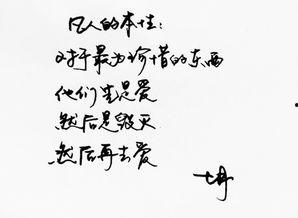 凡人的本性：
对于最为珍惜的东西
他们先是爱
然后是毁灭
然后再去爱